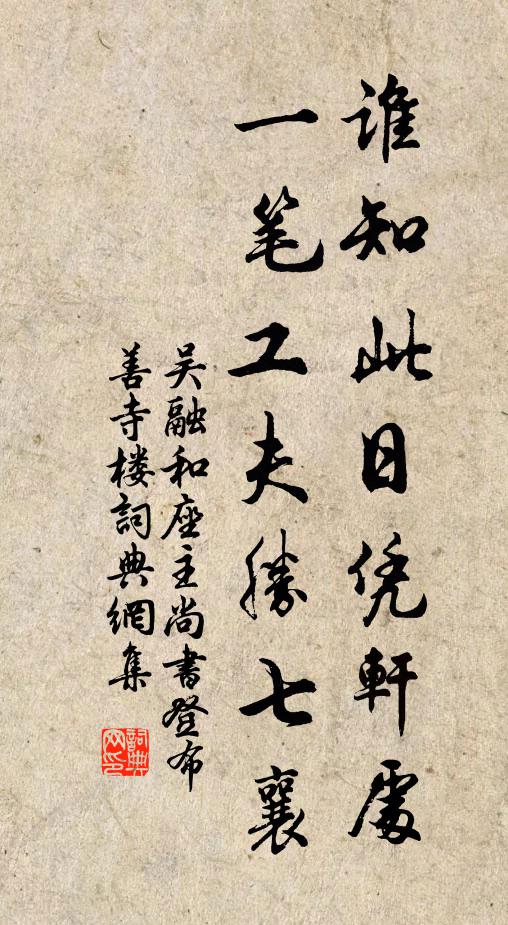 誰知此日凭軒處
一笔工夫勝七襄
吴融和座主尚書登布
善寺楼詞典網集
詞典网印